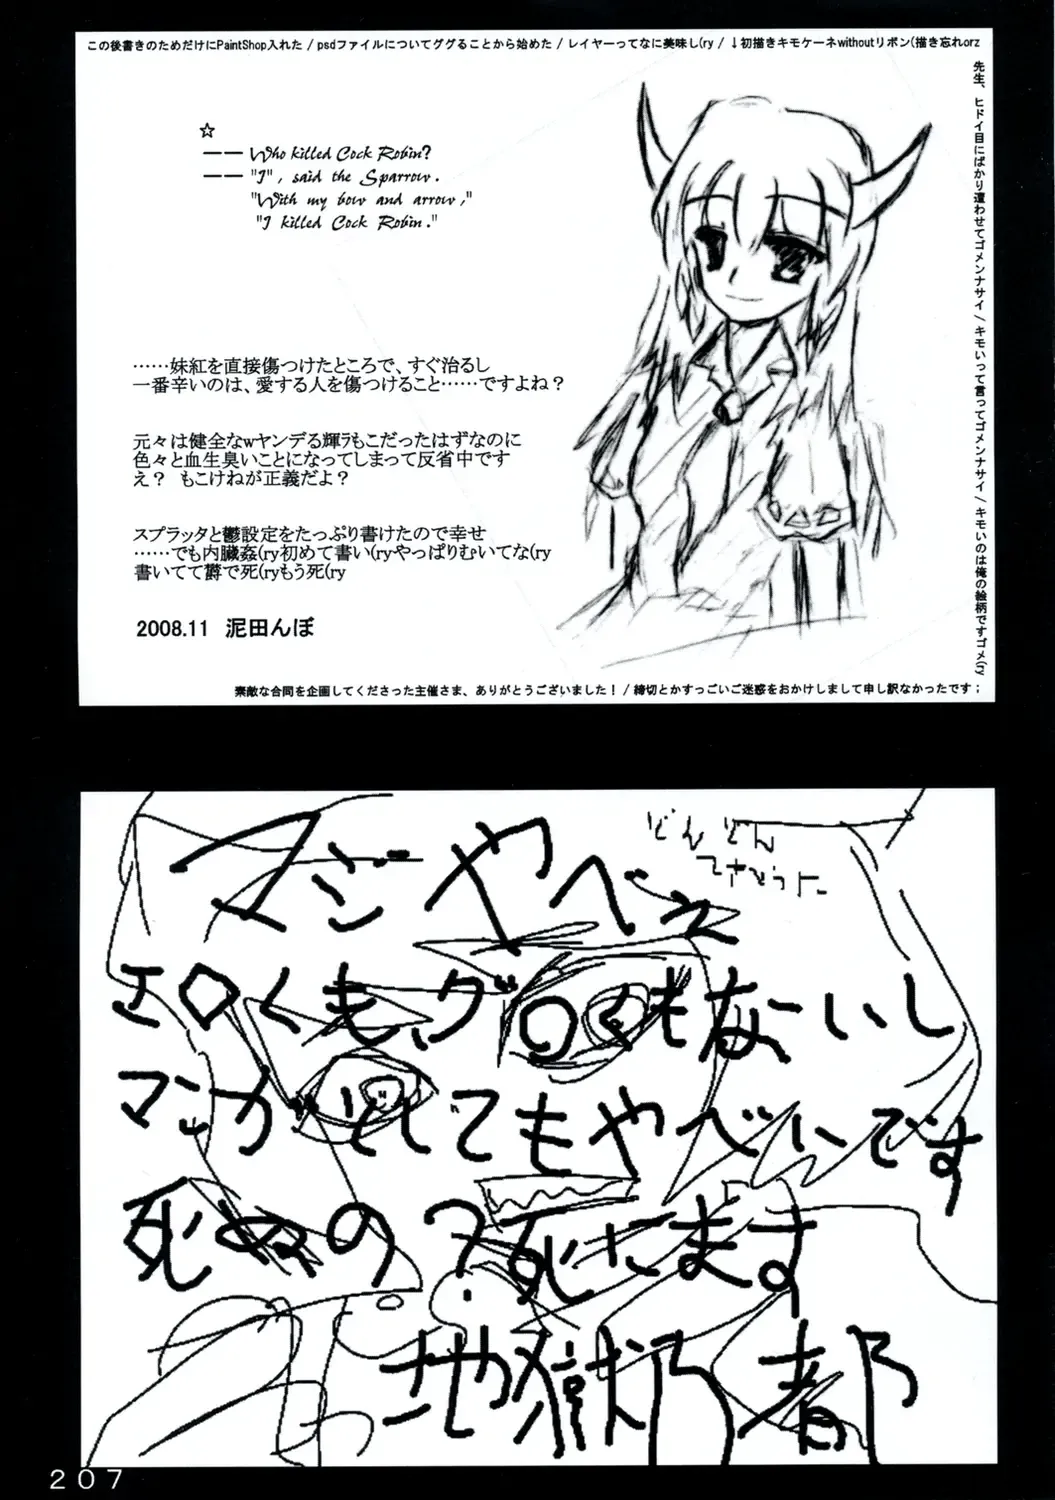 この後書きのためだけにPaintShop入れた / psdファイルについてググることから始めた / レイヤーってなに美味し(ry / ↓初描きキモケーネwithoutリボン(描き忘れorz
先生、ヒドイ目にばかり遭わせてゴメンナサイ / キモいって言ってゴメンナサイ / キモいのは俺の絵柄ですゴメ(ry
☆
―― Who killed Cock Robin?
―― "I", said the Sparrow.
"With my bow and arrow,"
"I killed Cock Robin."
……妹紅を直接傷つけたところで、すぐ治るし
一番辛いのは、愛する人を傷つけること……ですよね？
元々は健全なwヤンデる輝ﾗもこだったはずなのに
色々と血生臭いことになってしまって反省中です
え？ もこけねが正義だよ？
スプラッタと鬱設定をたっぷり書けたので幸せ
……でも内臓姦(ry初めて書い(ryやっぱりむいてな(ry
書いてて欝で死(ryもう死(ry
2008.11 泥田んぼ
素敵な合同を企画してくださった主催さま、ありがとうございました！ / 締切とかすっごいご迷惑をおかけしまして申し訳なかったです；
どんどん
マジやべぇ
エロくも、グロくもないし
マンガとしてもやべーです
死ぬの？死にます
地獄乃都
207